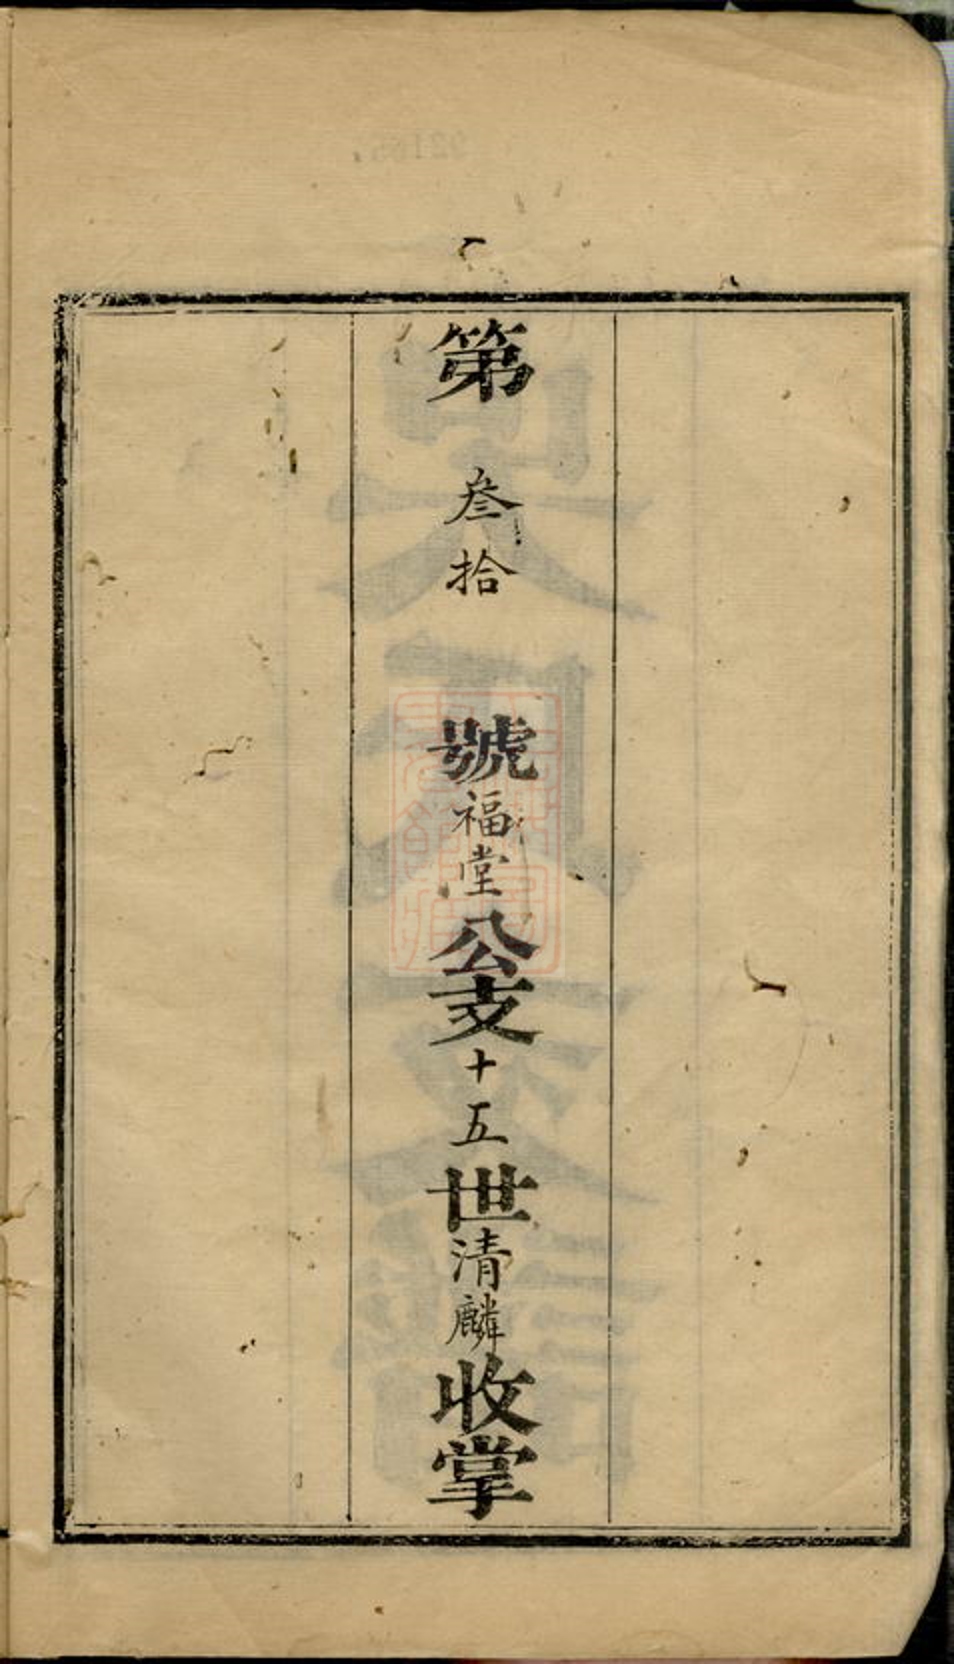 第叁拾號福堂公支十五世清麟收掌